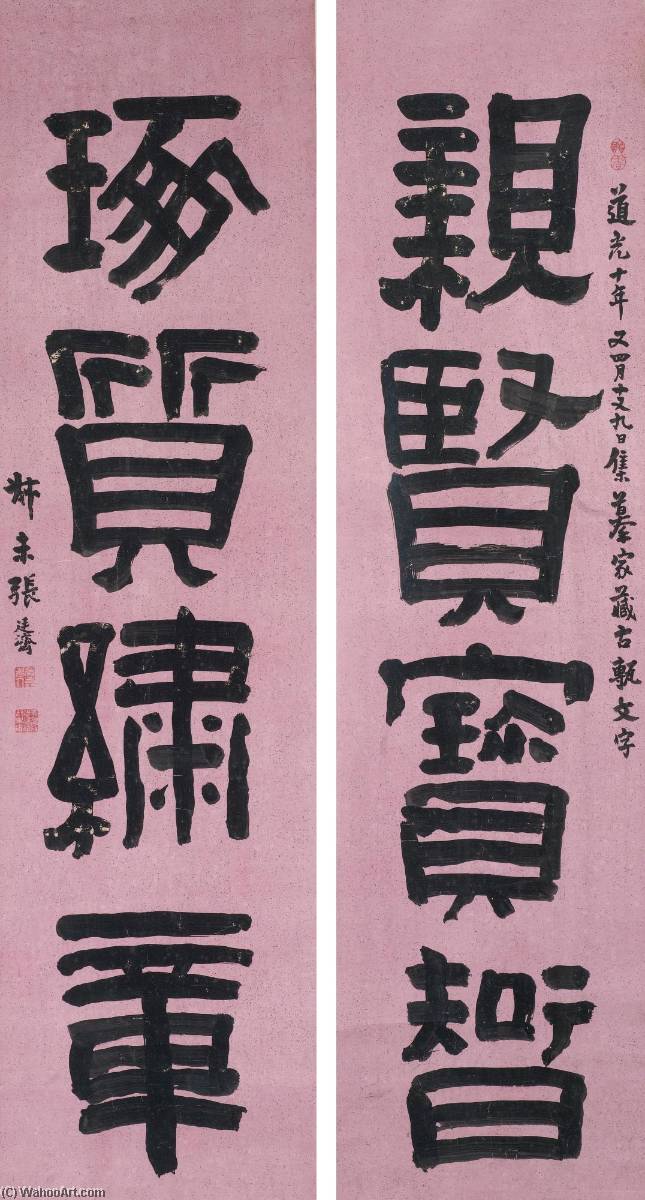 道光十年又四月十又九日集摹家藏古甎文字
親賢寶智
琢質繡章
叔未張廷濟
(C) WahooArt.com